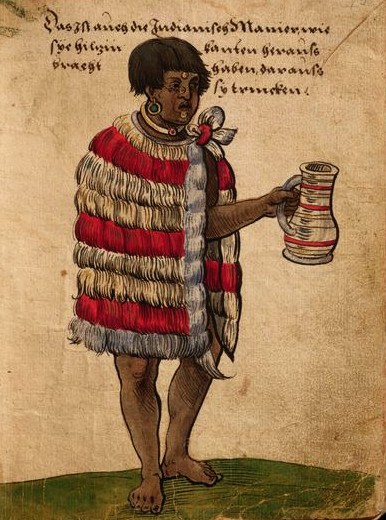 Das Ist auch die Indianisch Manier, wie
sye hiltzin kanten herauss
bracht haben, darauss
sy trincken.